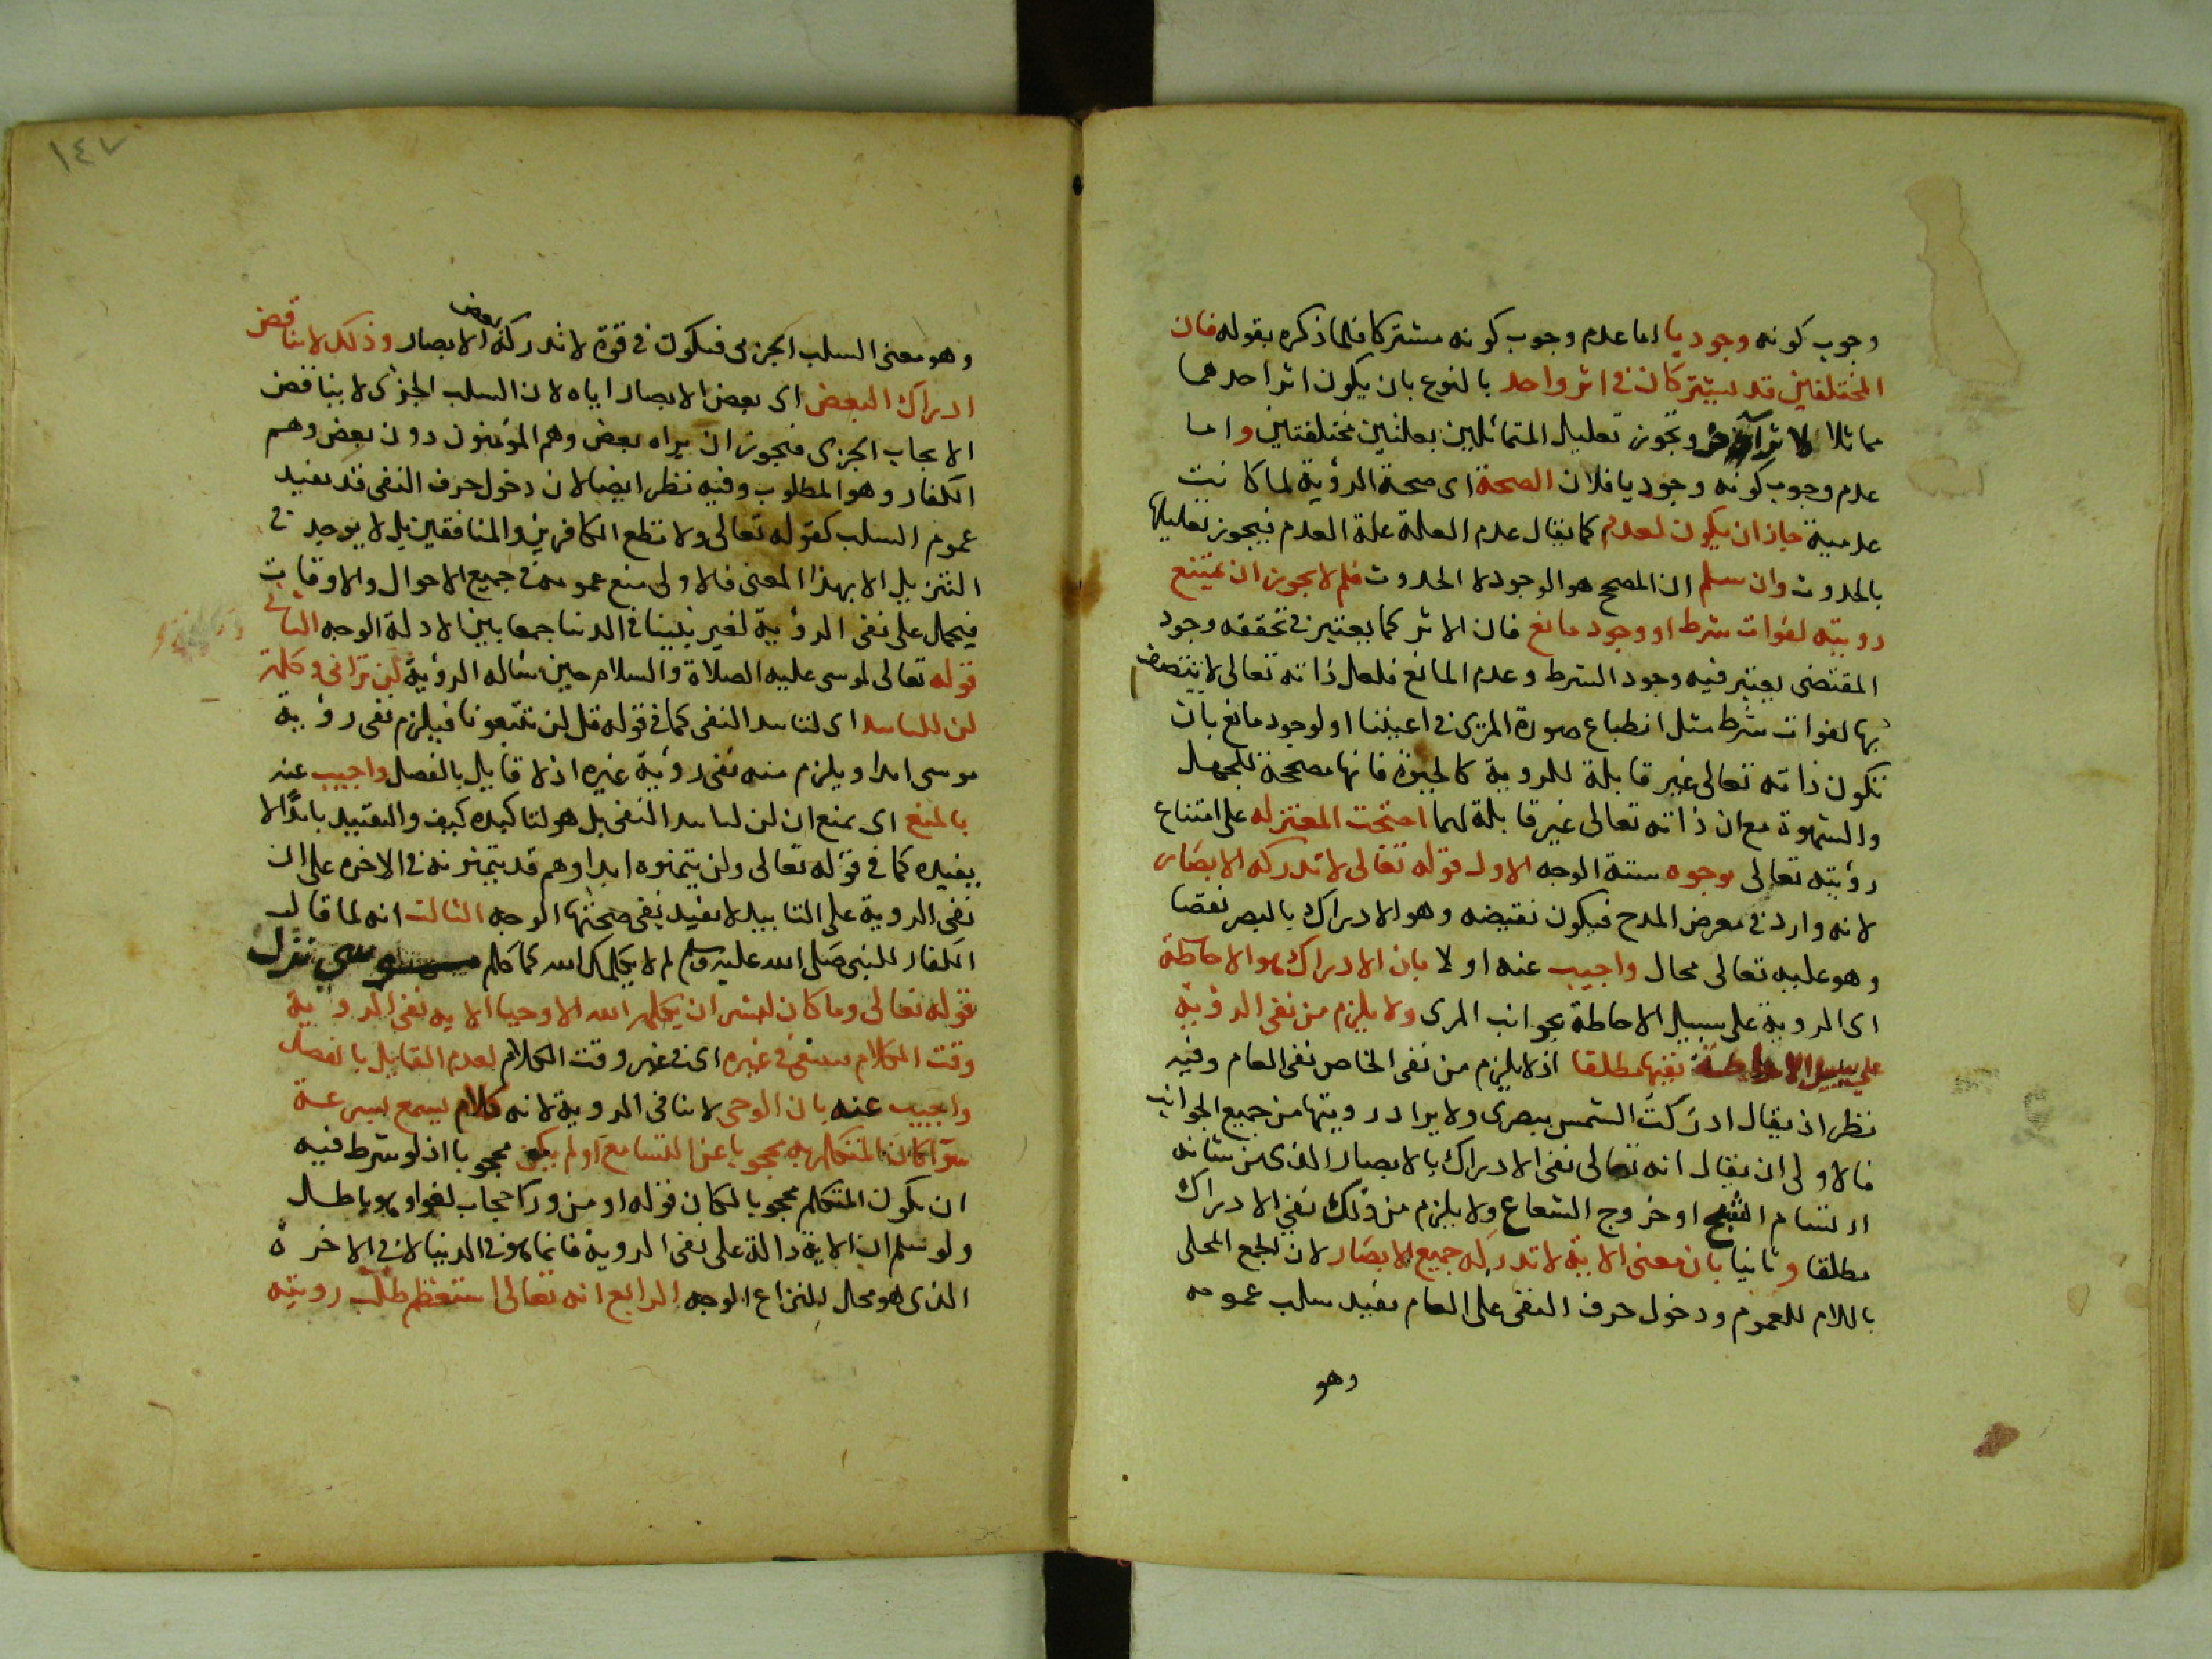 وجوب كونه وجوديا اما عدم وجوب كونه مشتركا فلما ذكره بقوله فان
المختلفين قد يشتركان في اثر واحد بالنوع بان يكون اثر احدهما
مماثلا لاثر الآخر ويجوز تعليل المتماثلين بعلتين مختلفتين واما
عدم وجوب كونه وجوديا فلان الصحة اى صحة الرؤية لما كانت
عدمية جاز ان يكون لعدم كما يقال عدم العلة علة العدم فيجوز تعليلها
بالحدوث وان سلم ان المصحح هو الوجود لا الحدوث فلم لا يجوز ان يمتنع
رويته لفوات شرط او وجود مانع فان الاثر كما يعتبر في تحققه وجود
المقتضى يعتبر فيه وجود الشرط وعدم المانع فلعل ذاته تعالى لا يتصف
بها لفوات شرط مثل انطباع صورة المرئى في اعيننا او لوجود مانع بان
تكون ذاته تعالى غير قابلة للروية كالحيوة فانها مصححة للجهل
والشهوة مع ان ذاته تعالى غير قابلة لهما احتجت المعتزله على امتناع
رؤيته تعالى بوجوه ستة الوجه الاول قوله تعالى لا تدركه الابصار
لانه وارد في معرض المدح فيكون نقيضه وهو الادراك بالبصر نقصا
وهو عليه تعالى محال واجيب عنه اولا بان الادراك هو الاحاطة
اى الروية على سبيل الاحاطة بجوانب المرى ولا يلزم من نفى الرؤية
على سبيل الاحاطة نفيها مطلقا اذ لا يلزم من نفى الخاص نفى العام وفيه
نظر اذ يقال ادركت الشمس ببصرى ولا يراد رويتها من جميع الجوانب
فالاولى ان يقال انه تعالى نفى الادراك بالابصار الذى من شانه
ارتسام الشبح او خروج الشعاع ولا يلزم من ذلك نفى الادراك
مطلقا وثانيا بان معنى الاية لا تدركه جميع الابصار لان الجمع المحلى
باللام للعموم ودخول حرف النفى على العام يفيد سلب عمومه
وهو
١٤٧
وهو معنى السلب الجزى فيكون في قوة لا تدركه بعض الابصار وذلك لا يناقض
ادراك البعض اى بعض الابصار اياه لان السلب الجزى لا يناقض
الايجاب الجزى فيجوز ان يراه بعض وهم المؤمنون دون بعض وهم
الكفار وهو المطلوب وفيه نظر ايضا لان دخول حرف النفى قد يفيد
عموم السلب كقوله تعالى ولا تطع الكافرين والمنافقين بل لا يوجد في
التنزيل الا بهذا المعنى فالاولى منع عمومه في جميع الاحوال والاوقات
فيحمل على نفى الرؤية لغير نبينا في الدنيا جمعا بين الادلة الوجه الثانى
قوله تعالى لموسى عليه الصلاة والسلام حين ساله الرؤية لن ترانى وكلمة
لن للتابيد اى لتابيد النفى كما في قوله قل لن تتبعونا فيلزم نفى رؤية
موسى ابدا ويلزم منه نفى رؤية غيره اذ لا قايل بالفصل واجيب عنه
بالمنع اى بمنع ان لن لتابيد النفى بل هو لتاكيده كيف والتقييد بابدًا لا
يفيده كما في قوله تعالى ولن يتمنوه ابدا وهم قد يتمنونه في الاخرة على ان
نفى الروية على التابيد لا يفيد نفى صحتها الوجه الثالث انه لما قالت
الكفار للنبى صلى الله عليه وسلم لم لا يكلمك الله كما كلم موسى نزل
قوله تعالى وما كان لبشر ان يكلمه الله الا وحيا الاية نفى الروية
وقت الكلام فينتفى في غيره اى في غير وقت الكلام لعدم القايل بالفصل
واجيب عنه بان الوحى لا ينافى الروية لانه كلام يسمع بسرعة
سوا كان المتكلم به محجوبا عن السامع او لم يكن محجوبا اذ لو شرط فيه
ان يكون المتكلم محجوبا لكان قوله او من وراء حجاب لغوا وهو باطل
ولو سلم ان الاية دالة على نفى الروية فانما هو في الدنيا لا في الاخرة
الذى هو محل النزاع الوجه الرابع انه تعالى استعظم طلب رويته